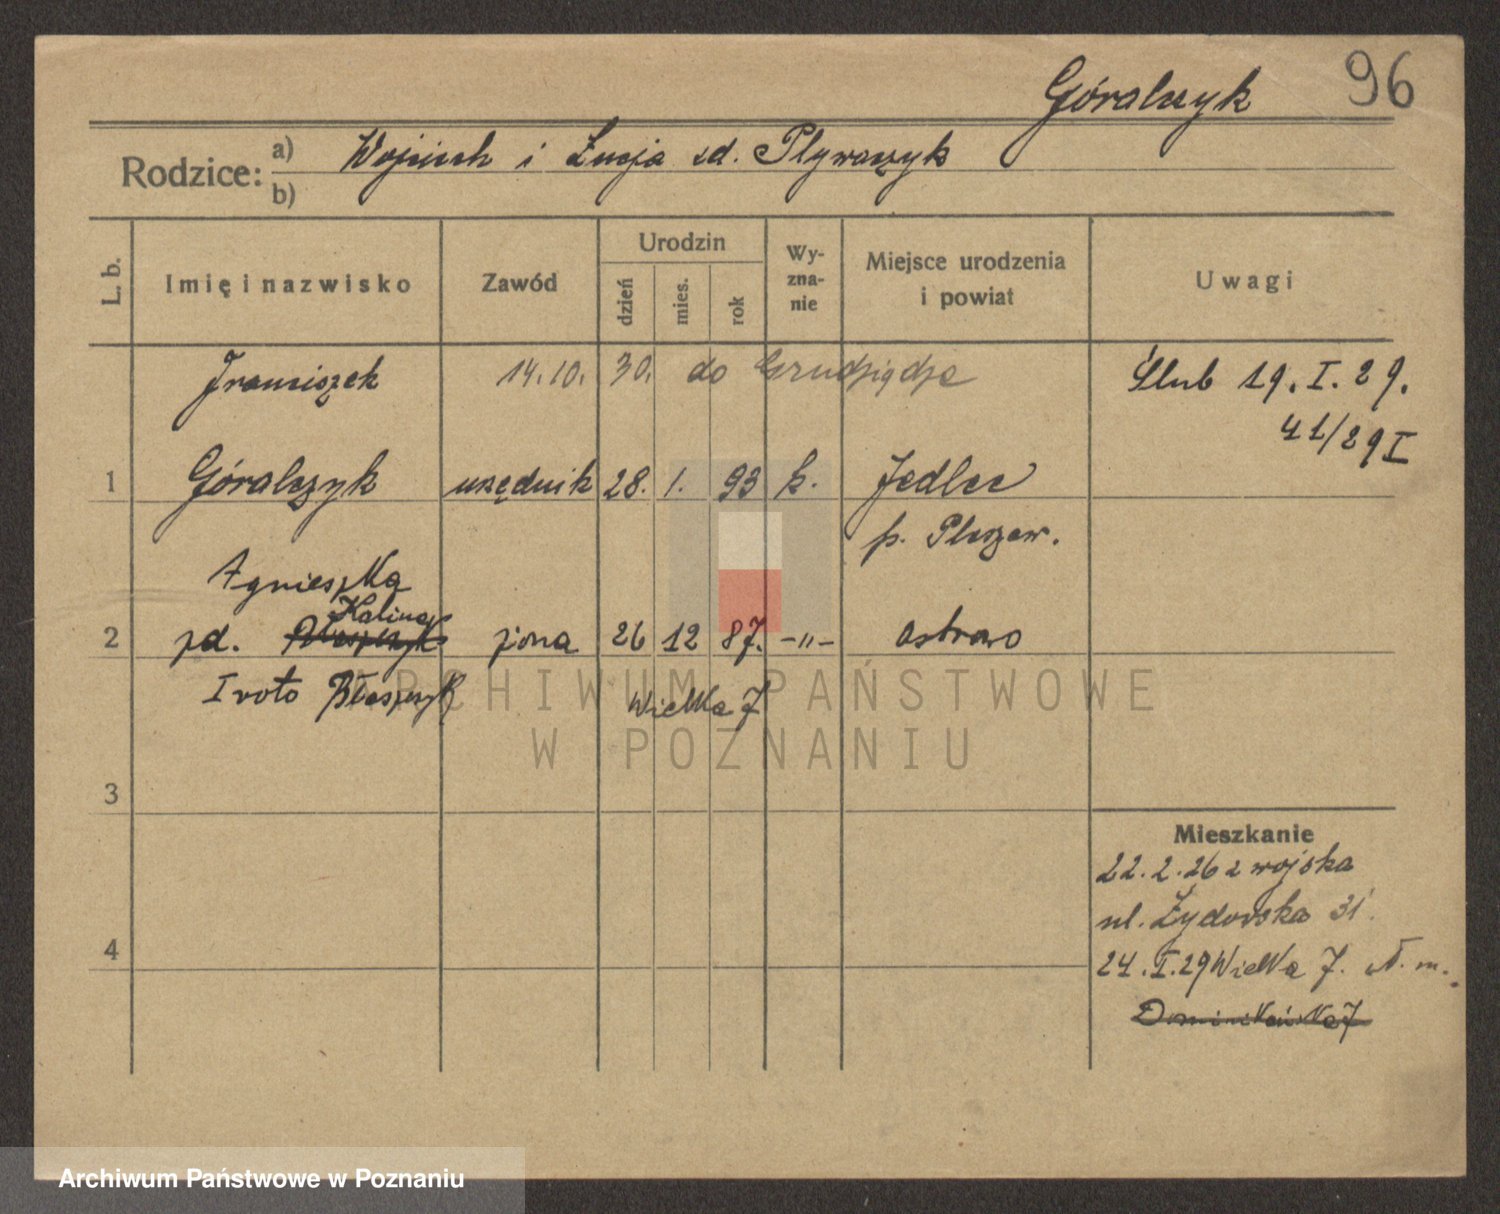 Góralczyk 96
Rodzice: a) Wojciech i Łucja zd. Pływaczyk
b)
L. b. Imię i nazwisko Zawód Urodzin dzień mies. rok Wy-zna-nie Miejsce urodzenia i powiat Uwagi
Franciszek 14.10. 30. do Grudziądza Ślub 19. I. 29.
41/29 I
1 Góralczyk urzędnik 28. 1. 93 k. Jedlec
p. Pleszew.
Agnieszka
Kalinaj
2 zd. Błaszczyk żona 26 12 87. -"- Ostrowo
I voto Błaszczyk Wielka 7
ARCHIWUM PAŃSTWOWE
W POZNANIU
3
Mieszkanie
22. 2. 26 z wojska
ul. Żydowska 31.
4
24. I. 29 Wielka 7. N. m.
Dominikańska 7
Archiwum Państwowe w Poznaniu